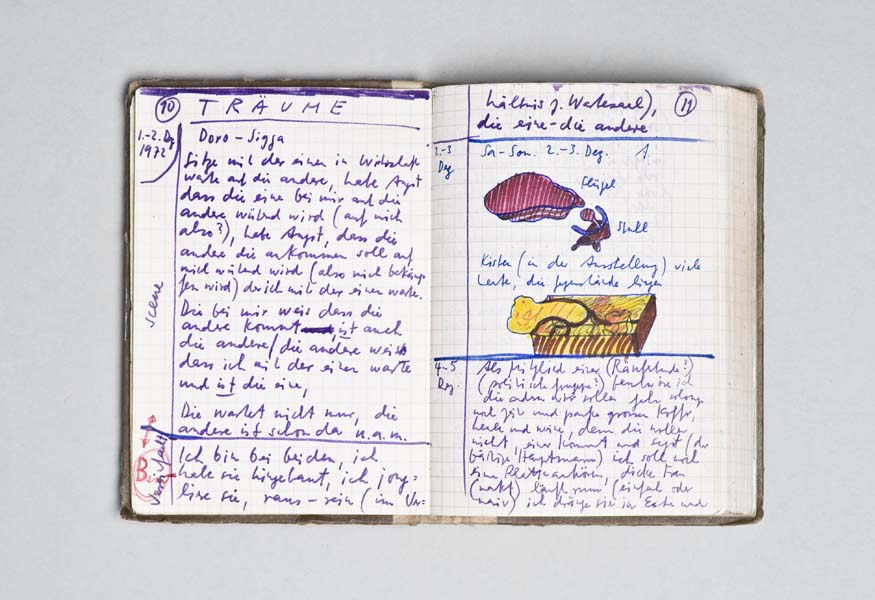 10 TRÄUME
1.-2. Dez
1972
Doro - Sigga
Sitze mit der einen in Wirtschaft
warte auf die andere, habe Angst
dass die eine bei mir auf die
andere wütend wird (auf mich
also?), habe Angst, dass die
andere die ankommen soll auf
mich wütend wird (also mich
wird) der ich mit der einen warte.
Scene
Die bei mir weis dass die
andere kommt ist auch
die andere/die andere weis
dass ich mit der einen warte
und ist die eine,
Die wartet nicht nur, die
andere ist schon da u.a.m.
Ich bin bei beiden, ich
habe sie hingebaut, ich jong=
liere sie, raus-rein (im Ver=
hältnis z. Wartesaal), 11
die eine-die andere
2.-3
Dez
Sa-Son. 2.-3. Dez. A.
Flügel
Stuhl
Kisten (in der Ausstellung) viele
Leute, die Gegenstände liegen
4-5
Dez.
Als Mitglied einer (Räuberbande?)
(politisch Gruppe?) ich
die andren wir sollen
und grossen Koffer,
und meine, denn die wollen
nicht, einer kommt und sagt (der
Hauptmann) ich soll mal
ein dicke Frau
(nackt) läuft rum (einfach oder
naiv) ich dränge sie in Ecke und